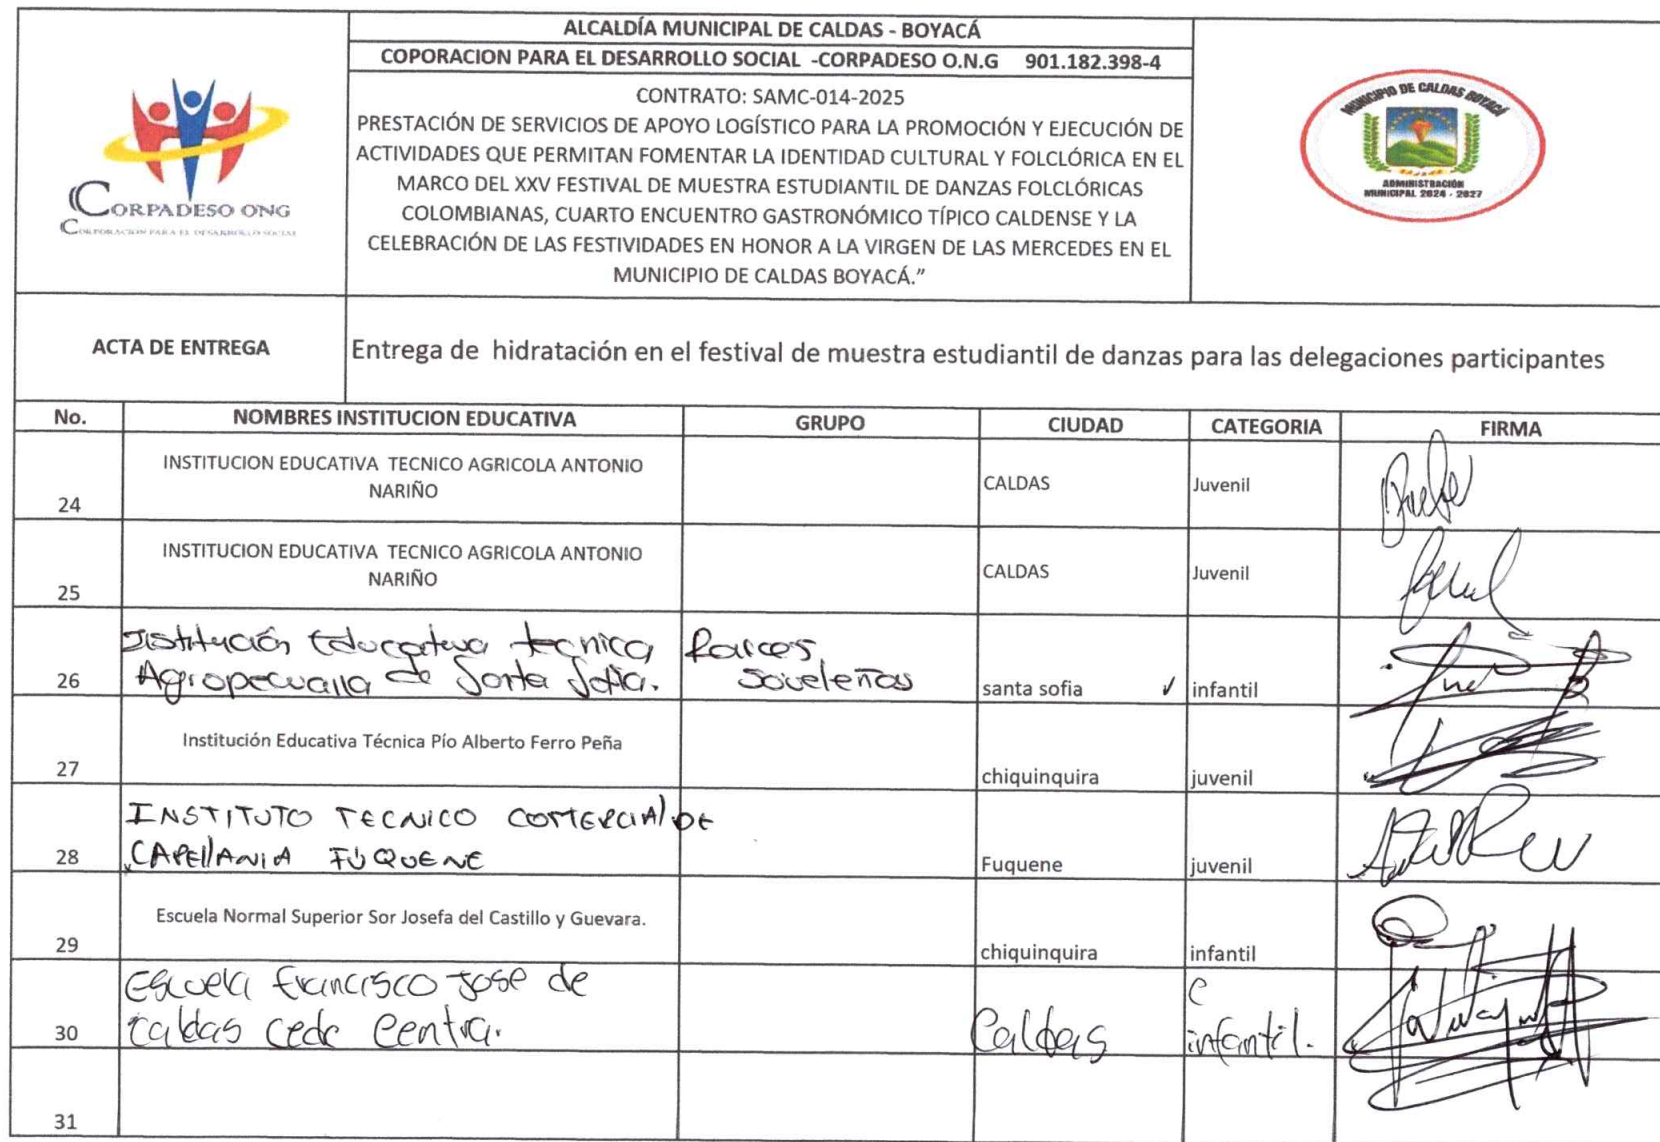 ALCALDÍA MUNICIPAL DE CALDAS - BOYACÁ
COPORACION PARA EL DESARROLLO SOCIAL -CORPADESO O.N.G 901.182.398-4
CONTRATO: SAMC-014-2025
PRESTACIÓN DE SERVICIOS DE APOYO LOGÍSTICO PARA LA PROMOCIÓN Y EJECUCIÓN DE
ACTIVIDADES QUE PERMITAN FOMENTAR LA IDENTIDAD CULTURAL Y FOLCLÓRICA EN EL
MARCO DEL XXV FESTIVAL DE MUESTRA ESTUDIANTIL DE DANZAS FOLCLÓRICAS
COLOMBIANAS, CUARTO ENCUENTRO GASTRONÓMICO TÍPICO CALDENSE Y LA
CELEBRACIÓN DE LAS FESTIVIDADES EN HONOR A LA VIRGEN DE LAS MERCEDES EN EL
MUNICIPIO DE CALDAS BOYACÁ.”
CORPADESO ONG
CORPORACION PARA EL DESARROLLO SOCIAL
MUNICIPIO DE CALDAS BOYACÁ
ADMINISTRACIÓN
MUNICIPAL 2024 - 2027
ACTA DE ENTREGA
Entrega de hidratación en el festival de muestra estudiantil de danzas para las delegaciones participantes
No. NOMBRES INSTITUCION EDUCATIVA GRUPO CIUDAD CATEGORIA FIRMA
INSTITUCION EDUCATIVA TECNICO AGRICOLA ANTONIO
NARIÑO
24 CALDAS Juvenil
INSTITUCION EDUCATIVA TECNICO AGRICOLA ANTONIO
NARIÑO
25 CALDAS Juvenil
Institución Educativa tecnica Raices
Agropecuaria de Santa Sofia. Soveleñas
26 santa sofia ✓ infantil
Institución Educativa Técnica Pío Alberto Ferro Peña
27 chiquinquira juvenil
INSTITUTO TECNICO COMERCIAL DE
CAPEllANIA FÚQUENE
28 Fuquene juvenil
Escuela Normal Superior Sor Josefa del Castillo y Guevara.
29 chiquinquira infantil
Escuela Francisco Jose de
Caldas Cede Centra.
30 Caldas infantil.
31